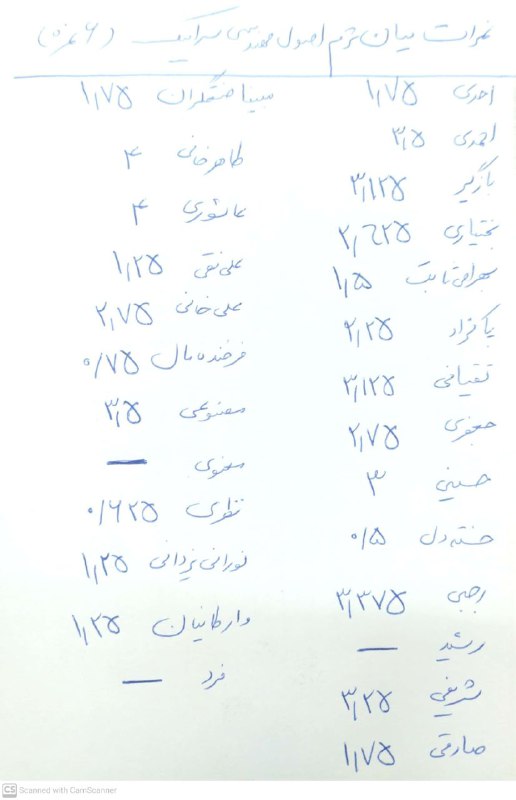 نمرات میان ترم اصول مهندسی سرامیک (۶ نمره)
احدی ۱,۷۵
احمدی ۳,۵
بازگیر ۳,۱۲۵
بختیاری ۲,۶۲۵
بهرامی ثابت ۱,۵
پاکزاد ۲,۲۵
تقیانی ۳,۱۲۵
جعفری ۲,۷۵
حسینی ۳
خسته دل ۰/۵
رجبی ۳,۳۷۵
رشید —
شریفی ۳,۲۵
صادقی ۱,۷۵
مبینا صنعتگران ۱,۷۵
طاهرخانی ۴
عاشوری ۴
علی نقی ۱,۲۵
علی خانی ۲,۷۵
فرخنده مال ۰/۷۵
معنوی ۳,۵
—
نظری ۰/۶۲۵
نورانی یزدانی ۱,۲۵
وارطانیان ۱,۲۵
فرد —
CS Scanned with CamScanner